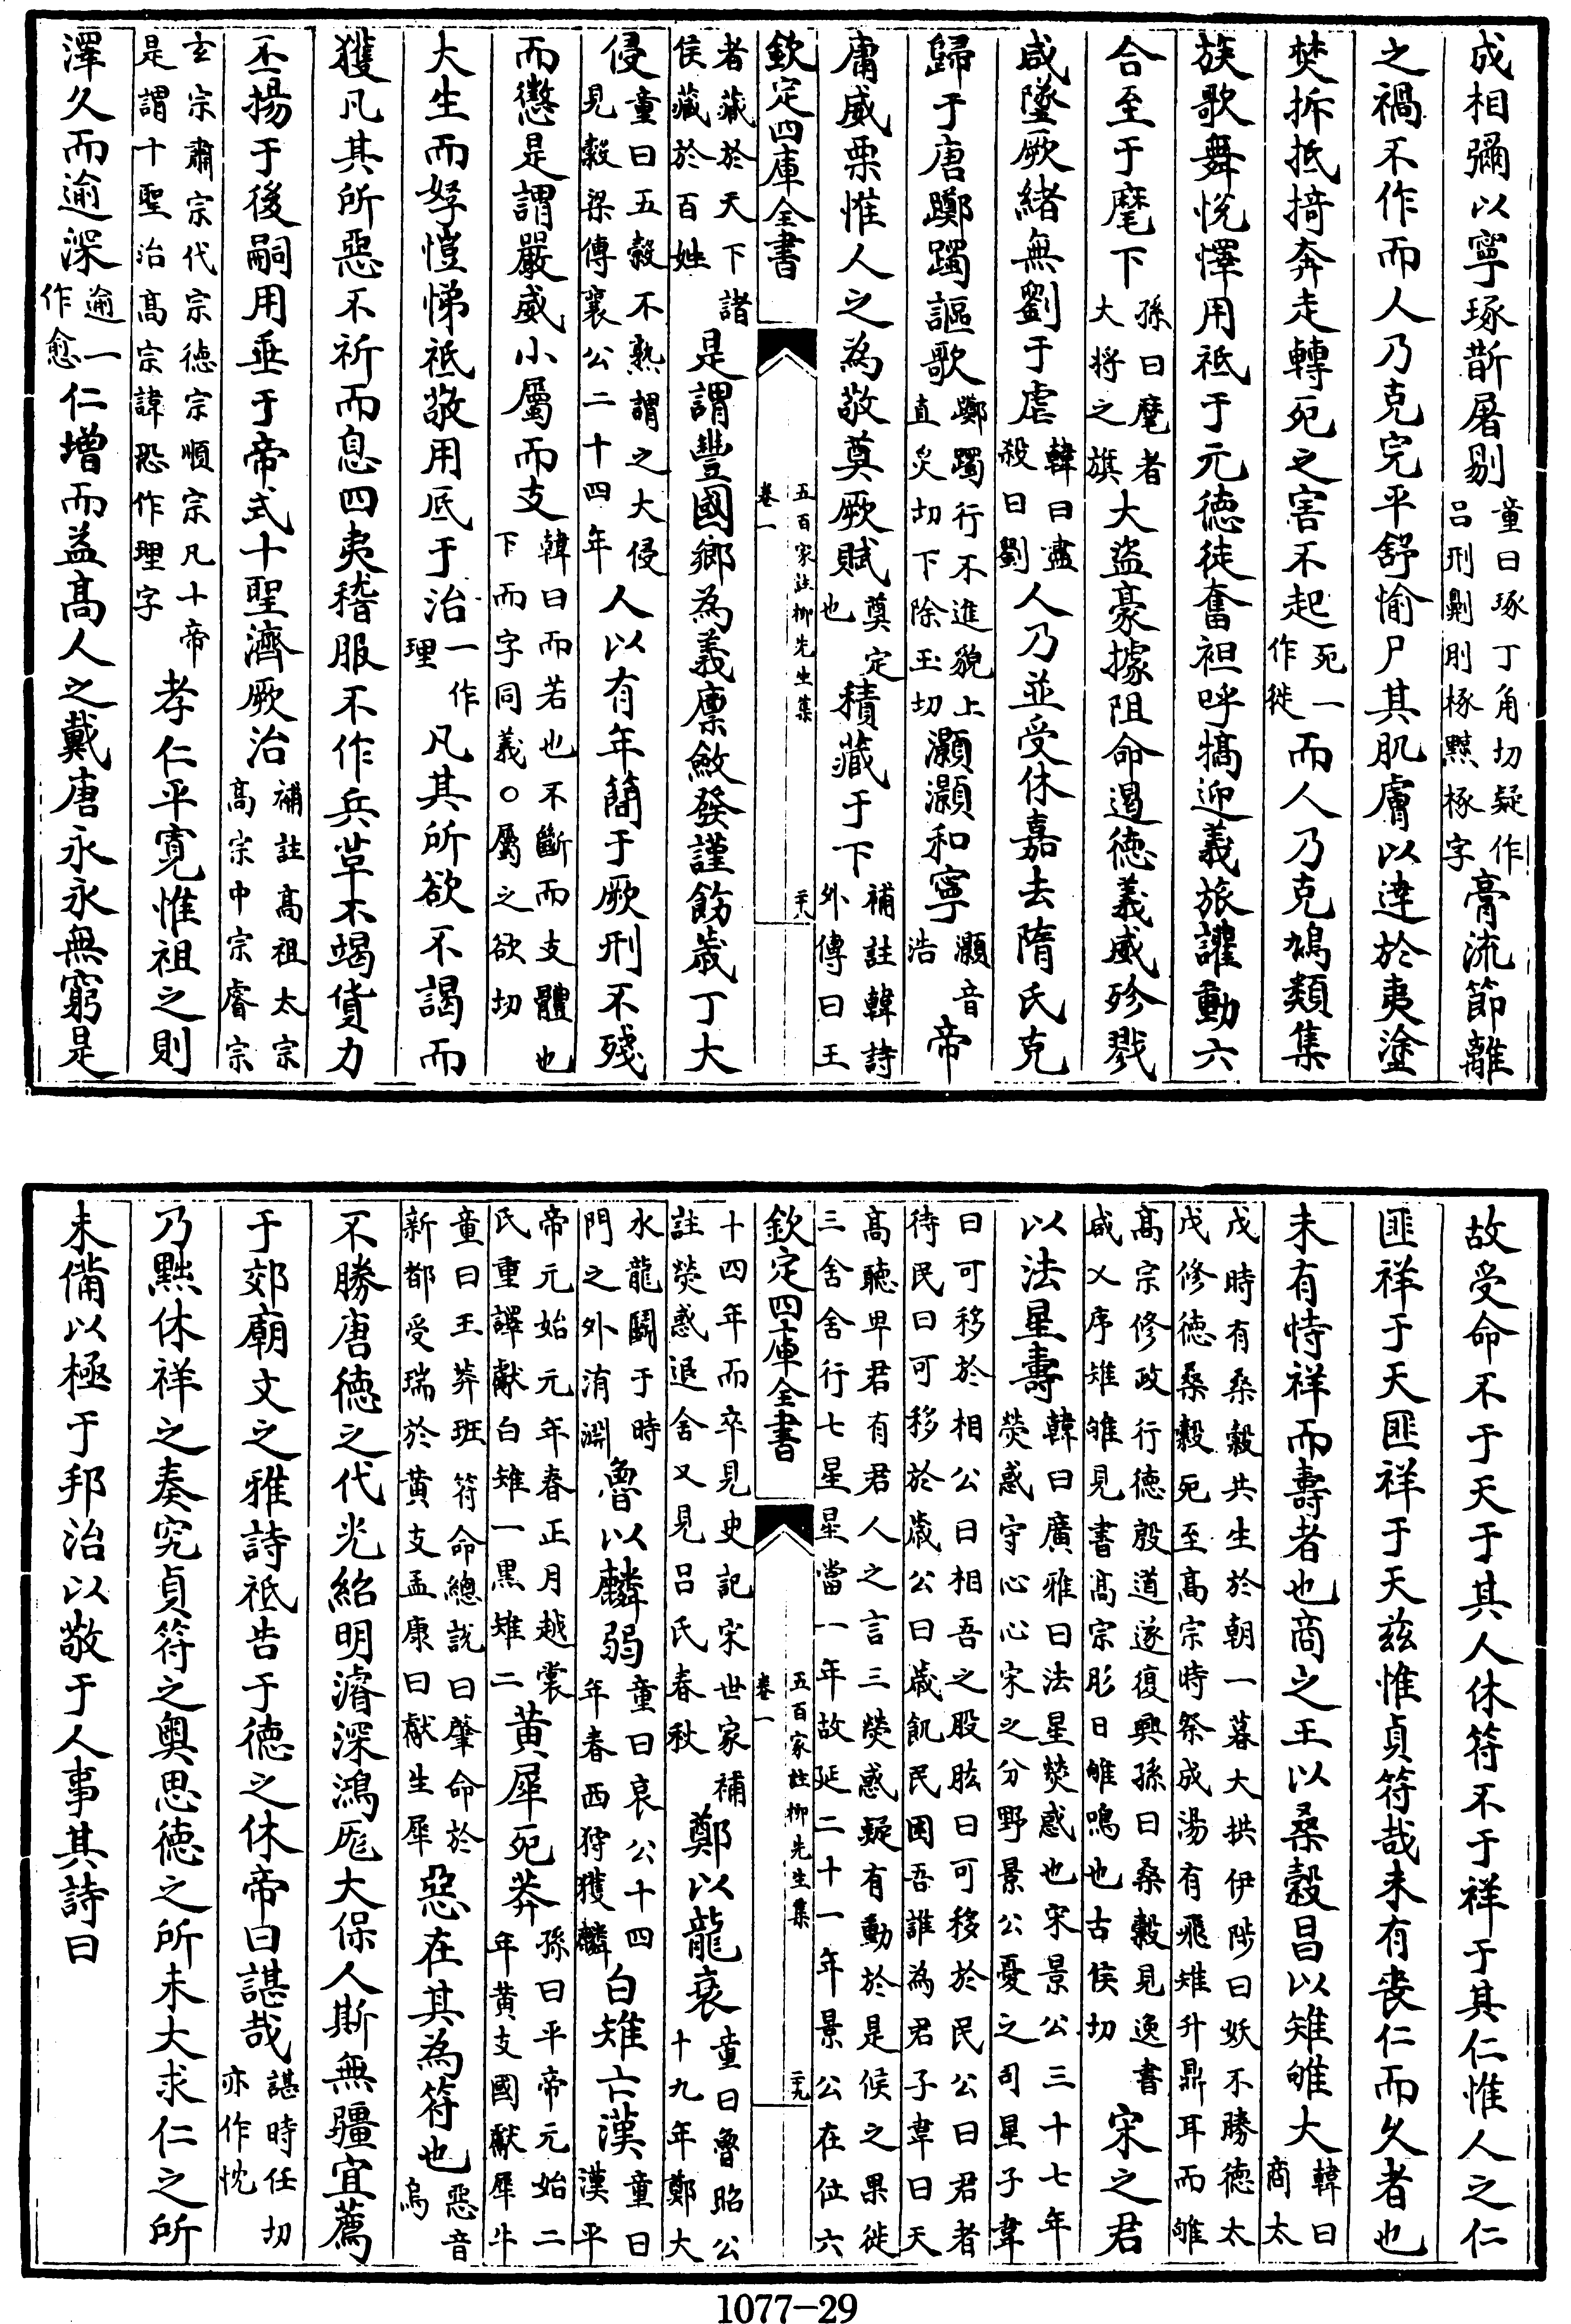 成相彌以寧琢斮屠剔童曰琢丁角切疑作吕刑劓刵椓黥椓字膏流節離
之禍不作而人乃克完平舒愉尸其肌膚以達於夷塗
焚拆抵掎奔走轉死之害不起死一作徙而人乃克鳩類集
族歌舞悦懌用祗于元徳徒奮袒呼犒迎義旅讙動六
合至于麾下孫曰麾者大將之旗大盜豪據阻命遏徳義威殄戮
咸墜厥緒無劉于虐韓曰盡殺曰劉人乃並受休嘉去隋氏克
歸于唐躑躅謳歌躑躅行不進貌上直炙切下除玉切灝灝和寧灝音浩帝
庸威栗惟人之為敬奠厥賦奠定也積藏于下補註韓詩外傳曰王
欽定四庫全書 五百家註柳先生集 卷一 二十八
者藏於天下諸侯藏於百姓是謂豐國鄉為義廩斂發謹飭歲丁大
侵童曰五穀不熟謂之大侵見穀梁傳襄公二十四年人以有年簡于厥刑不殘
而懲是謂嚴威小屬而支韓曰而若也不斷而支體也下而字同義○屬之欲切
大生而孥愷悌祗敬用底于治一作理凡其所欲不謁而
獲凡其所惡不祈而息四夷稽服不作兵革不竭貨力
丕揚于後嗣用垂于帝式十聖濟厥治補註髙祖太宗髙宗中宗睿宗
玄宗肅宗代宗徳宗順宗凡十帝是謂十聖治髙宗諱恐作理字孝仁平寛惟祖之則
澤久而逾深逾一作愈仁增而益髙人之戴唐永永無窮是
故受命不于天于其人休符不于祥于其仁惟人之仁
匪祥于天匪祥于天兹惟貞符哉未有喪仁而久者也
未有恃祥而壽者也商之王以桑穀昌以雉雊大韓曰商太
戊時有桑穀共生於朝一暮大拱伊陟曰妖不勝徳太戊修徳桑穀死至髙宗時祭成湯有飛雉升鼎耳而雊
髙宗修政行徳殷道遂復興孫曰桑穀見逸書咸乂序雉雊見書髙宗肜日雊鳴也古侯切宋之君
以法星壽韓曰廣雅曰法星熒惑也宋景公三十七年熒惑守心心宋之分野景公憂之司星子韋
曰可移於相公曰相吾之股肱曰可移於民公曰君者待民曰可移於歲公曰歲飢民困吾誰為君子韋曰天
髙聽卑君有君人之言三熒惑疑有動於是候之果徙三舍舍行七星星當一年故延二十一年景公在位六
欽定四庫全書 五百家註柳先生集 卷一 二十九
十四年而卒見史記宋世家補註熒惑退舍又見吕氏春秋鄭以龍衰童曰魯昭公十九年鄭大
水龍鬬于時門之外洧淵魯以麟弱童曰哀公十四年春西狩獲麟白雉亡漢童曰漢平
帝元始元年春正月越裳氏重譯獻白雉一黒雉二黄犀死莽孫曰平帝元始二年黄支國獻犀牛
童曰王莽班符命總説曰肇命於新都受瑞於黄支孟康曰獻生犀惡在其為符也惡音烏
不勝唐徳之代光紹明濬深鴻厖大保人斯無疆宜薦
于郊廟文之雅詩祗告于徳之休帝曰諶哉諶時任切亦作忱
乃黜休祥之奏究貞符之奥思徳之所未大求仁之所
未備以極于邦治以敬于人事其詩曰
1077-29